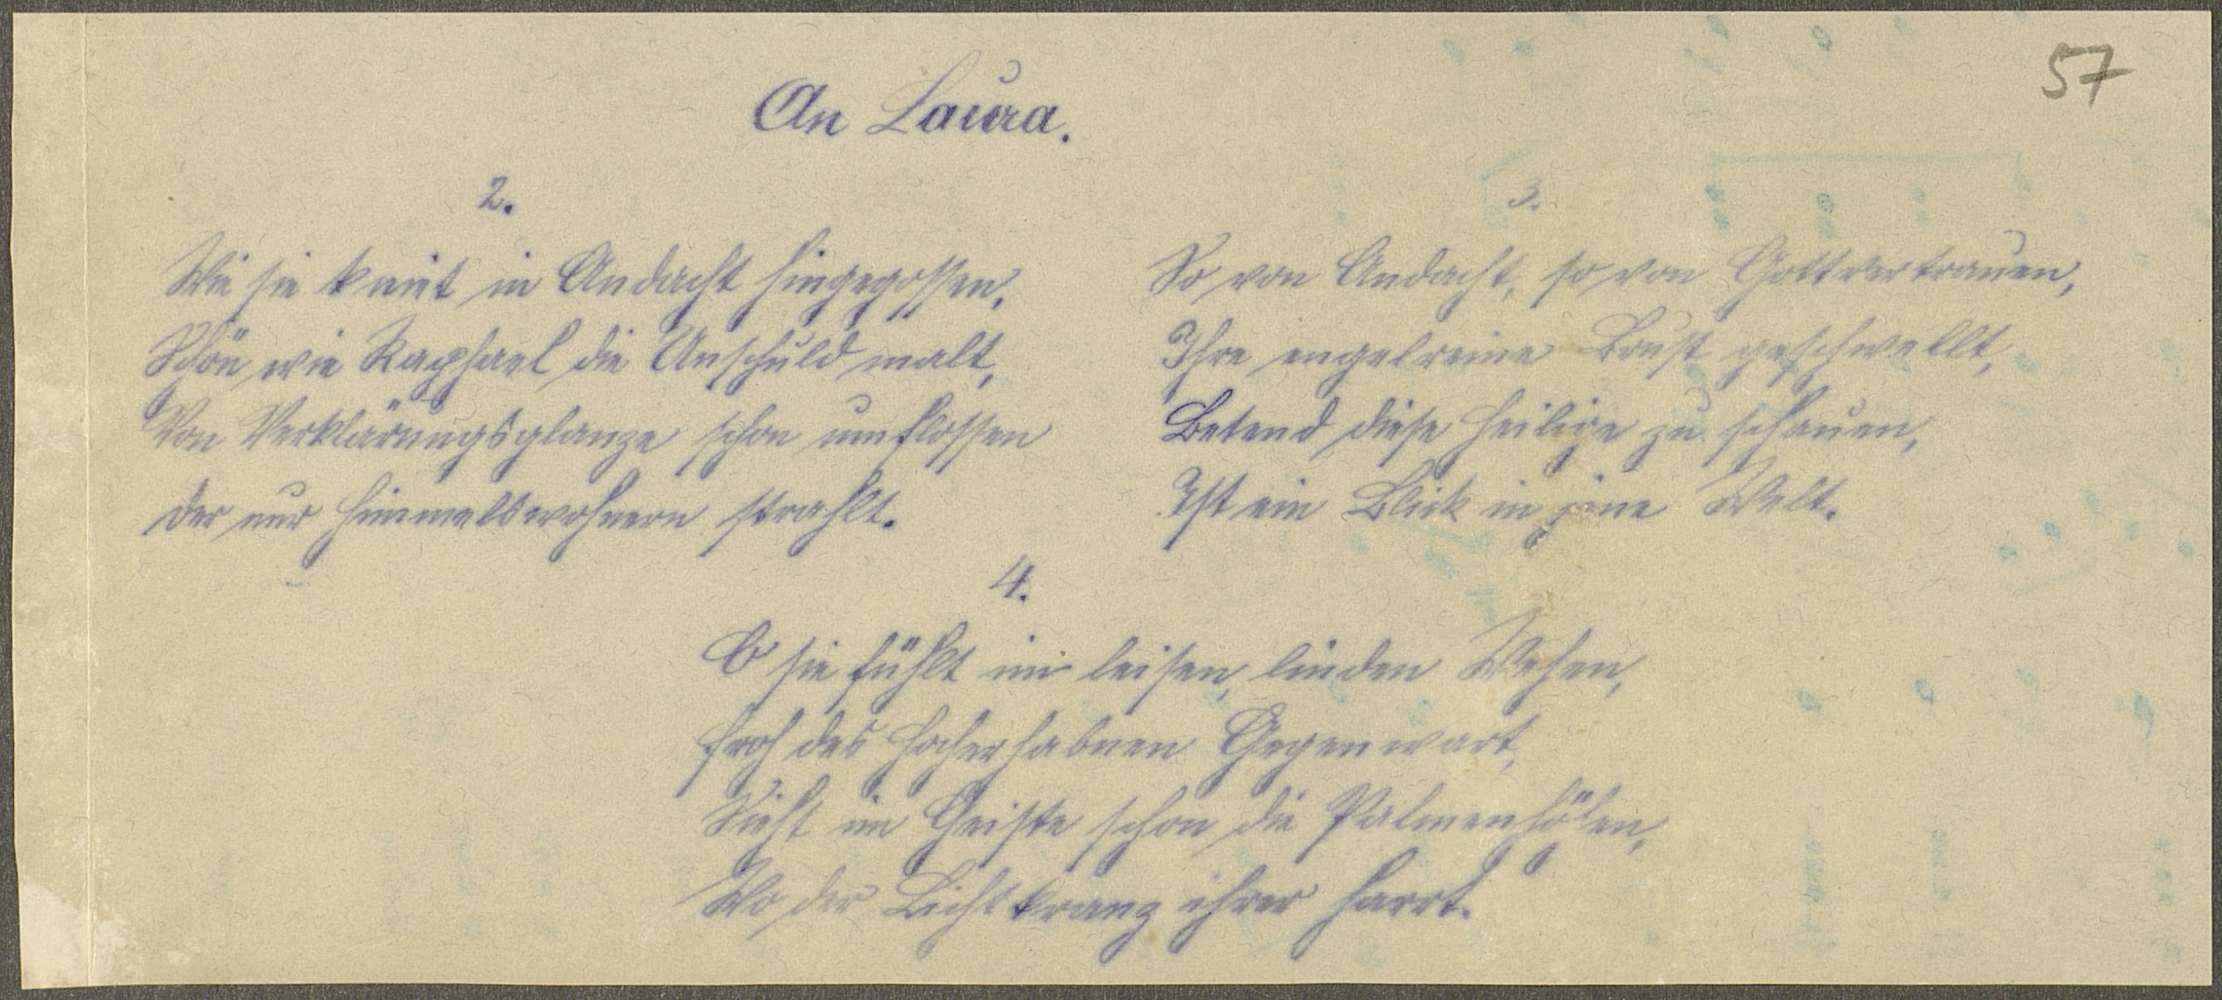 57
An Laura.
2.
Wie sie kniet in Andacht hingegossen,
Schön wie Raphael die Unschuld malt,
Von Verklärungsglanze schon umflossen
Der nur Himmelswohnern strahlt.
3.
So von Andacht, so von Gottvertrauen,
Ihre engelreine Brust geschwellt,
Betend diese Heilige zu schauen,
Ist ein Blick in jene Welt.
4.
O sie fühlt im leisen, linden Wehen,
Froh des Hocherhabnen Gegenwart,
Sieht im Geiste schon die Palmenhöhen,
Wo der Lichtkranz ihrer harrt.